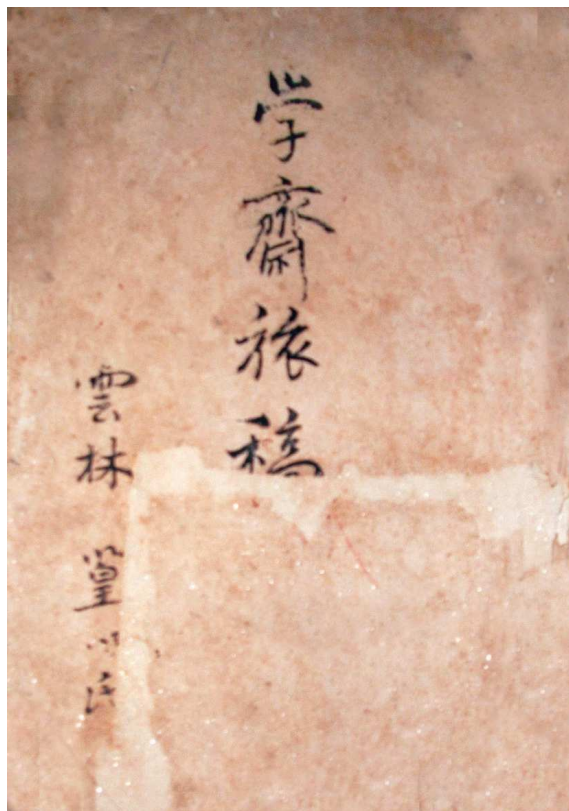 学齋旅稿
雲林 篁